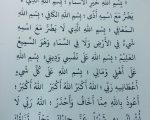 بِسْمِ اللَّهِ خَيْرِ الْأَسْمَاءِ ؛ بِسْمِ اللَّهِ الَّذِي لَا
يَضُرُّ مَعَ اسْمِهِ أَذًى ؛ بِسْمِ اللَّهِ الْكَافِي ؛ بِسْمِ اللَّهِ
الْمُعَافِي ؛ بِسْمِ اللَّهِ الَّذِي لَا يَضُرُّ مَعَ اسْمِهِ
شَيْءٌ فِي الْأَرْضِ وَلَا فِي السَّمَاءِ وَهُوَ السَّمِيعُ
الْعَلِيمُ ؛ بِسْمِ اللَّهِ عَلَى نَفْسِي وَدِينِي ؛ بِسْمِ اللَّهِ
عَلَى أَهْلِي وَمَالِي ؛ بِسْمِ اللَّهِ عَلَى كُلِّ شَيْءٍ
اللَّهُ أَكْبَرُ ؛ اللَّهُ أَكْبَرُ ؛ اللَّهُ أَكْبَرُ ؛
أَعُوذُ بِاللَّهِ مِمَّا أَخَافُ وَأَحْذَرُ ؛ اللَّهُ رَبِّي لَا